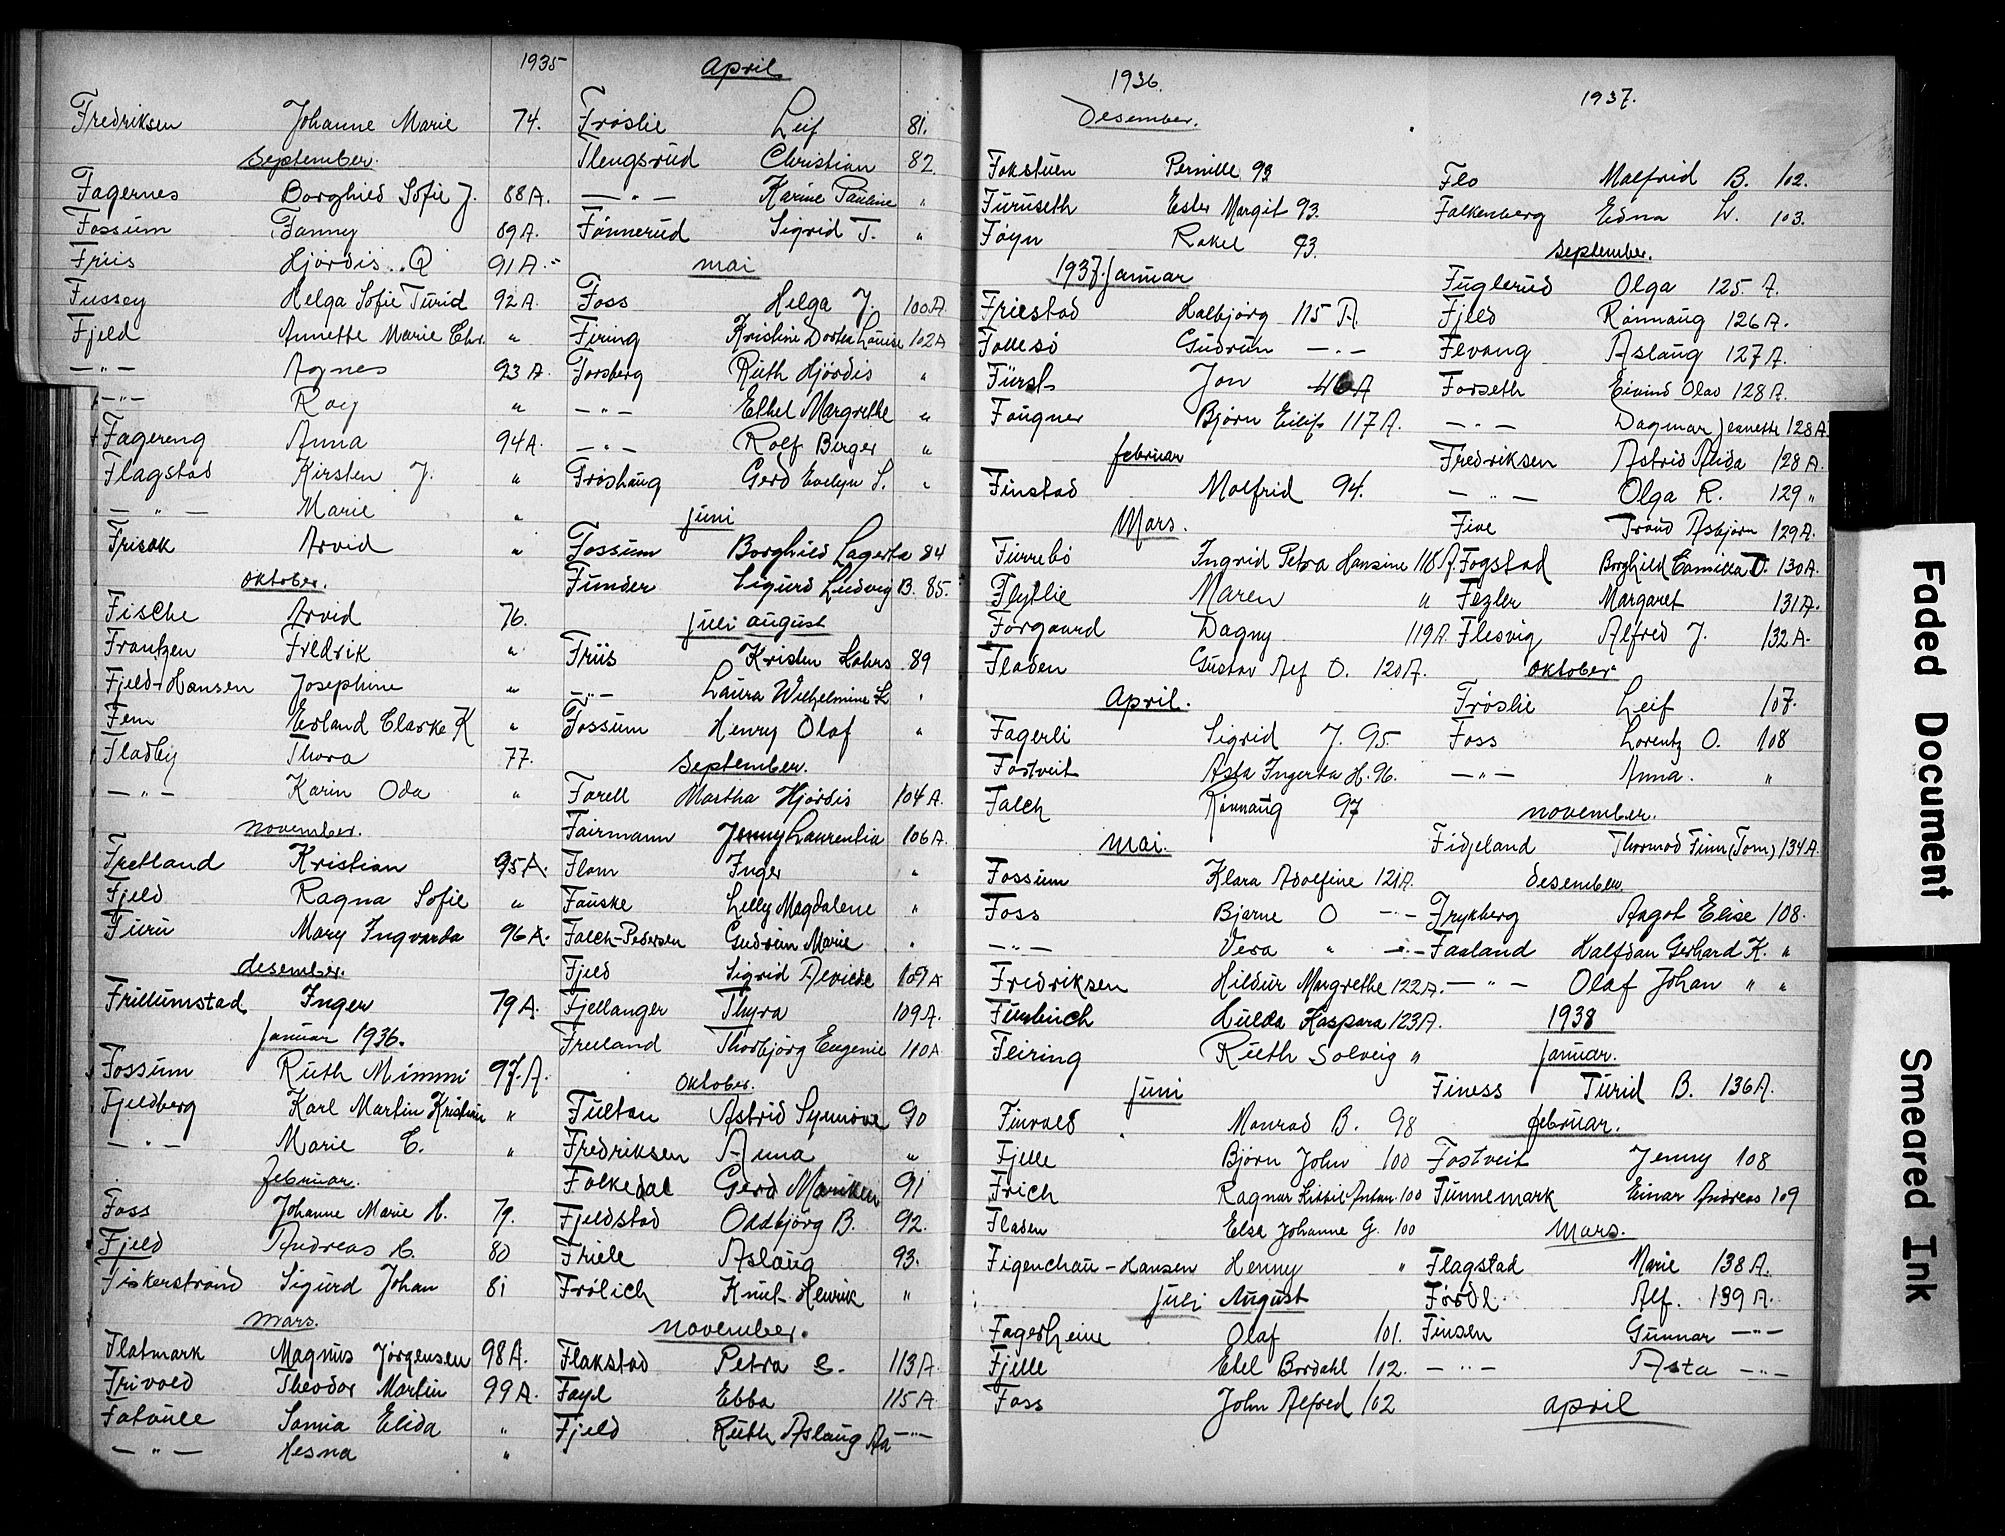 1935
Fredriksen Johanne Marie 74.
september.
Fagernes Borghild Sofie J. 88A.
Fossum Fanny 89A.
Friis Hjördis Q 91A.-
Fussey Helga Sofie Turid 92A.
Fjeld Annette Marie Chr. "
— " — Agnes 93A.
— " — Roy "
Fagereng Anna 94A.
Flagstad Kirsten J. "
— " — Marie "
Frisak Arvid "
oktober.
Fische Arvid 76.
Frantzen Fredrik "
Fjeld-Hansen Josephine "
Fem Erland Clarke K "
Fladby Thora 77.
— " — Karin Oda "
november.
Fretland Kristian 95A.
Fjeld Ragna Sofie "
Furu Mary Ingvarda 96A.
desember.
Frillumstad Inger 79A.
Januar 1936.
Fossum Ruth Mimmi 97.A.
Fjeldberg Karl Martin Kristian "
— " — Marie C. "
februar.
Foss Johanne Marie A. 79.
Fjeld Andreas C. 80
Fiskerstrand Sigurd Johan 81
mars.
Flatmark Magnus Jörgensen 98A.
Frivold Theodor Martin 99A.
Fatville Samia Elida "
— " — Hesna "
april
Fröslie Leif 81.
Flengsrud Christian 82
— " — Karine Pauline "
Fönnerud Sigrid T. "
mai
Foss Helga J. 100A
Firing Kristine Dortea Louise 102A
Forsberg Ruth Hjördis "
— " — Ethel Margrethe "
— " — Rolf Birger "
Fröshaug Gerd Evelyn S. "
juni
Fossum Borghild Lagerta 84
Funder Sigurd Ludvig B. 85.
juli august
Friis Kristen Lahrs 89
— " — Laura Wilhelmine L "
Fossum Henry Olaf "
September.
Farell Martha Hjördis 104A.
Fairmann Jenny Laurentia 106A.
Flom Inger "
Fauske Lelly Magdalene "
Falch-Pedersen Gudrun Marie "
Fjeld Sigrid Alvilde 109A
Fjellanger Thyra 109A.
Freiland Thorbjörg Eugenie 110A
oktober.
Fultan Astrid Synnöve 90
Fredriksen Anna "
Folkedal Gerd Mariken 91
Fjeldstad Oddbjörg B. 92.
Friele Aslaug 93.
Frölich Knut Henrik "
november.
Flakstad Petra E. 113A.
Fayl Ebba 115A
Fjeld Ruth Aslaug Aa — " —
1936.
Desember.
Fokstuen Pernille 93
Furuseth Ester Margit 93.
Föyn Rakel 93.
1937. Januar
Friestad Halbjörg 115 A.
Follesö Gudrun — " —
Fürst Jon 46A
Fougner Björn Eilif 117A.
februar
Finstad Malfrid 94.
Mars.
Furrebö Ingrid Petra Hansine 118A
Flyllie Maren "
Forgaard Dagny 119A.
Fladen Gustav Alf O. 120A.
April.
Fagerli Sigrid J. 95.
Fostveit Asta Ingerta H. 96.
Falch Rönnaug 97
mai.
Fossum Klara Adolfine 121A.
Foss Bjarne O — " —
— " — Vera " — " —
Fredriksen Hildur Margrethe 122A.
Furbuch Hulda Kaspara 123A.
Feiring Ruth Solveig "
juni
Finvold Monrad B. 98
Fjelle Björn John 100
Frich Ragnar Kittil Anton 100
Fladen Else Johanne G. 100
Figenchau-Hansen Henny "
Juli August
Fagerheim Olaf 101.
Fjelle Ebel Bordahl 102.
Foss John Alfred 102
1937.
Flo Malfrid B. 102.
Falkenberg Edna L. 103.
september.
Fuglerud Olga 125 A.
Fjeld Rönnaug 126A.
Fevang Aslaug 127A.
Forseth Eivind Olav 128A.
— " — Dagmar Jeanette 128A
Fredriksen Astrid Alida 128A.
— " — Olga R. 129 "
Five Trond Asbjörn 129A.
Fogstad Borghild Camilla D. 130A.
Fezler Margaret 131A.
Flesvig Alfred J. 132A.
oktober
Fröslie Leif 107.
Foss Lorentz O. 108
— " — Anna. "
november.
Fidjeland Thormod Finn (Tom) 134A.
desember
Frykberg Aagot Elise 108.
Faaland Halfdan Gerhard K. "
— " — Olaf Johan " "
1938
Januar.
Finess Turid B. 136A.
februar.
Fostveit Jenny 108
Funnemark Einar Andreas 109
Mars.
Flagstad Marie 138A.
Fördl Alf. 139A.
Finsen Gunnar — " —
— " — Asta — " —
april
Faded Document
Smeared Ink